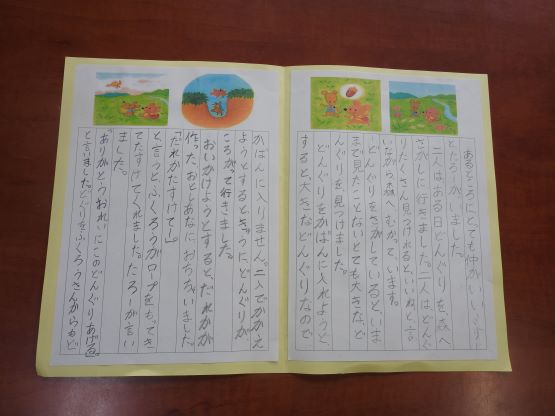 あるところにとても仲がいい
とたろーがいました。
二人はある日どんぐりを森へ
さがしに行きました。二人はどんぐ
りたくさん見つけれるといいね。と言
いながら森へむかって、います。
どんぐりをさがしていると、いま
まで見たことないとても大きなど
んぐりを見つけました。
どんぐりをかばんに入れようと
すると、大きなどんぐりなので
かばんに入りません。二人でかかえ
ようとすると、きゅうに、どんぐりが
ころがって行きました。
おいかけようとすると、だれかが
作った、おとしあなに、おちちゃいました。
「だれかたすけてー」
と、言うとふくろうがロープをもってき
てたすけてくれました。たろーが言い
ました。
「ありがとうおれいにこのどんぐりあげる」
と言いました。どんぐりをふくろうさんからもど